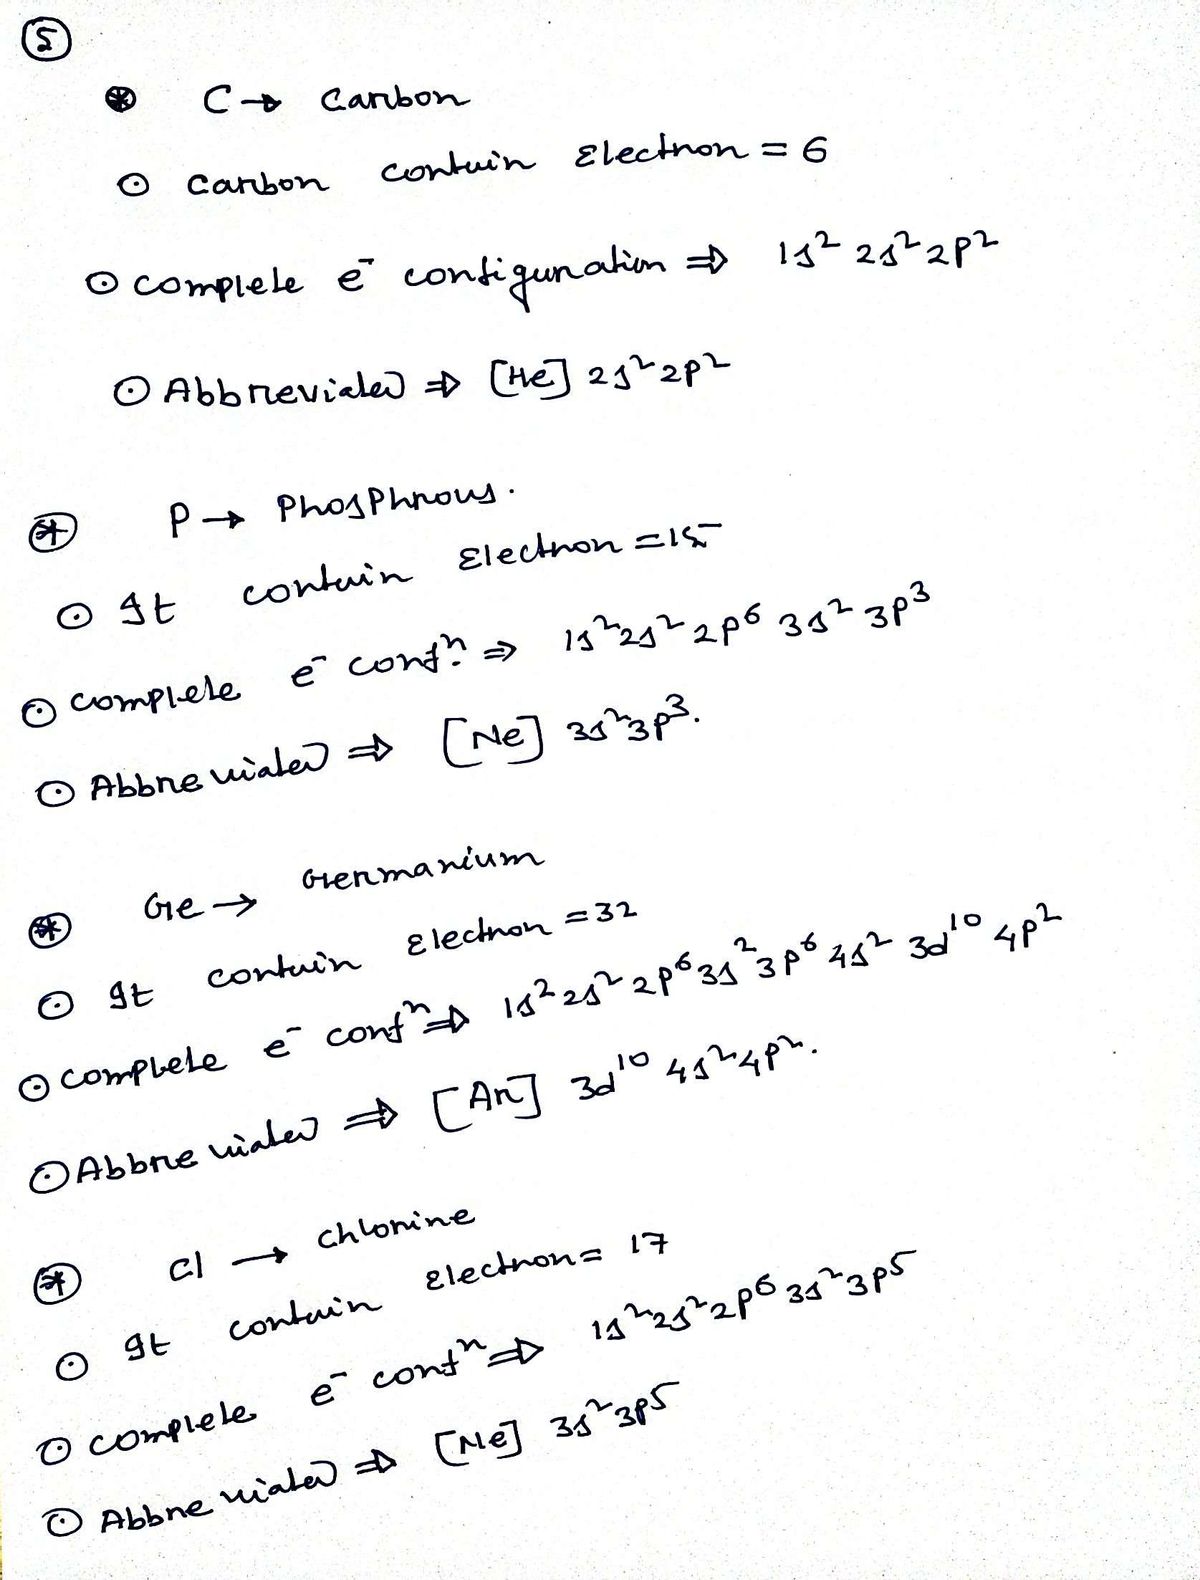 5
C → Carbon
Carbon contain Electron = 6
Complete e⁻ configuration ⇒ 1s² 2s² 2p²
Abbreviated ⇒ [He] 2s² 2p²
P → Phosphrous.
It contain Electron = 15
Complete e⁻ confⁿ. ⇒ 1s² 2s² 2p⁶ 3s² 3p³
Abbreviated ⇒ [Ne] 3s² 3p³.
Ge → Germanium
It contain Electron = 32
Complete e⁻ confⁿ ⇒ 1s² 2s² 2p⁶ 3s² 3p⁶ 4s² 3d¹⁰ 4p²
Abbreviated ⇒ [Ar] 3d¹⁰ 4s² 4p².
Cl → Chlorine
It contain Electron = 17
Complete e⁻ confⁿ ⇒ 1s² 2s² 2p⁶ 3s² 3p⁵
Abbreviated ⇒ [Ne] 3s² 3p⁵